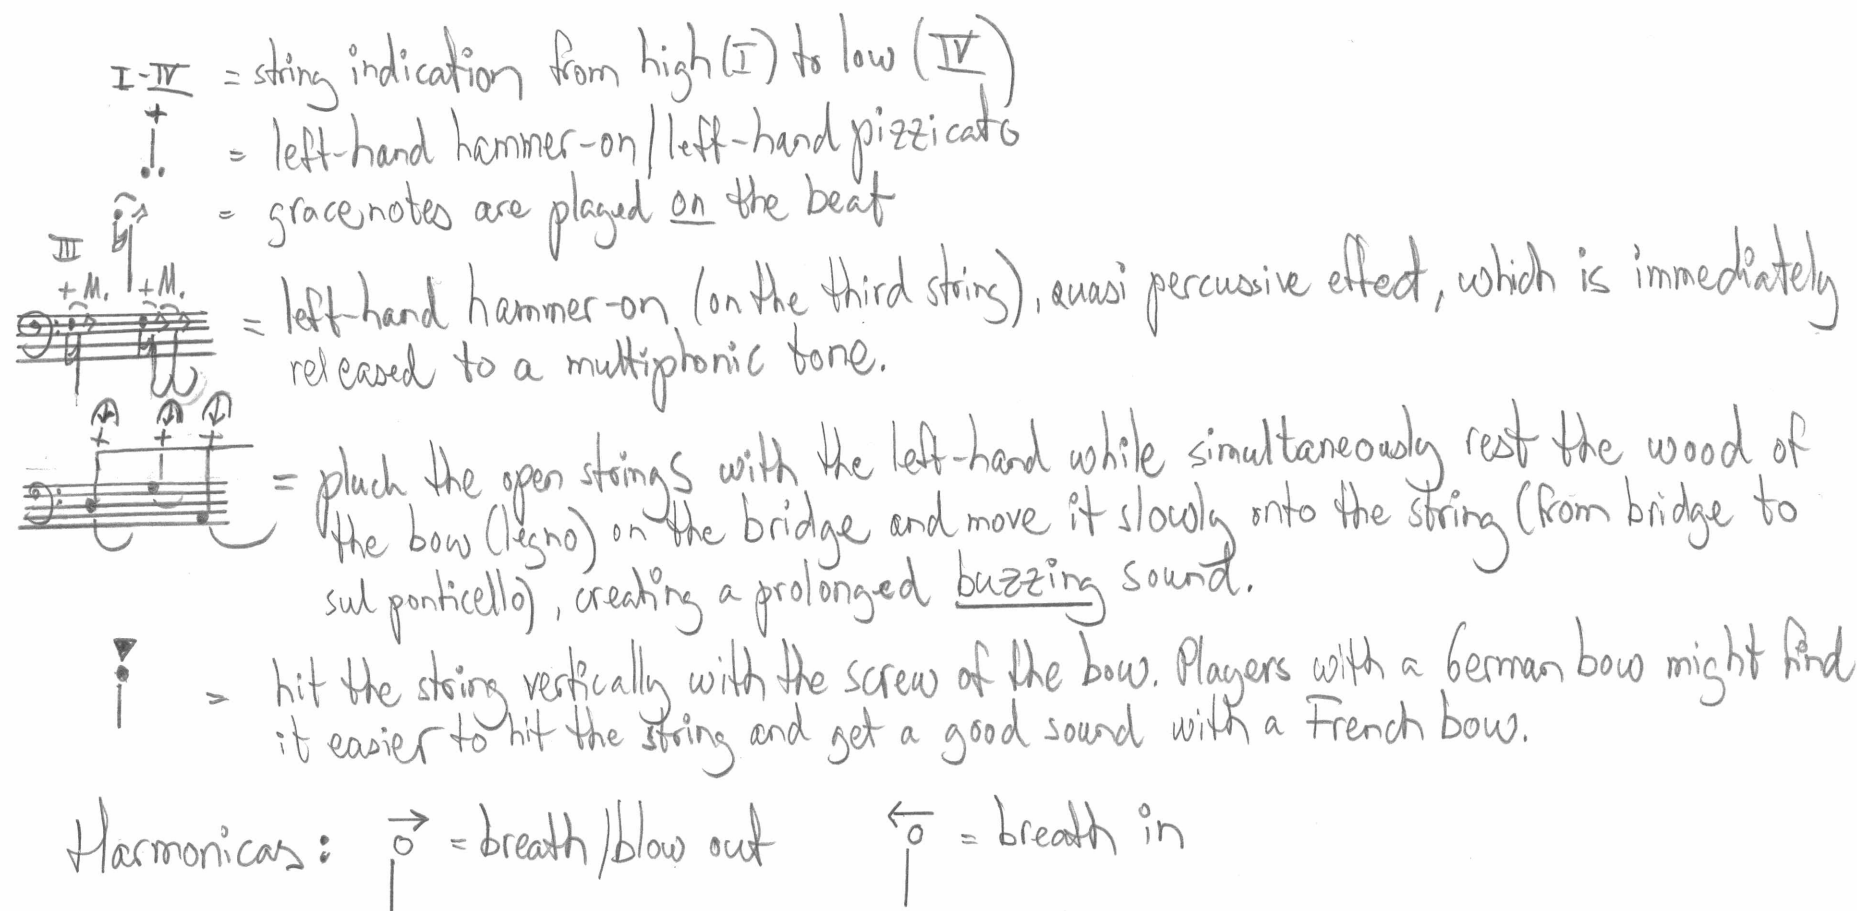 I-IV = string indication from high (I) to low (IV)
+ = left-hand hammer-on/left-hand pizzicato
= gracenotes are played on the beat
III
+M. +M. = left-hand hammer-on (on the third string), quasi percussive effect, which is immediately
released to a multiphonic tone.
+ + + = pluck the open strings with the left-hand while simultaneously rest the wood of
the bow (legno) on the bridge and move it slowly onto the string (from bridge to
sul ponticello), creating a prolonged buzzing sound.
= hit the string vertically with the screw of the bow. Players with a German bow might find
it easier to hit the string and get a good sound with a French bow.
Harmonicas: → = breath/blow out ← = breath in